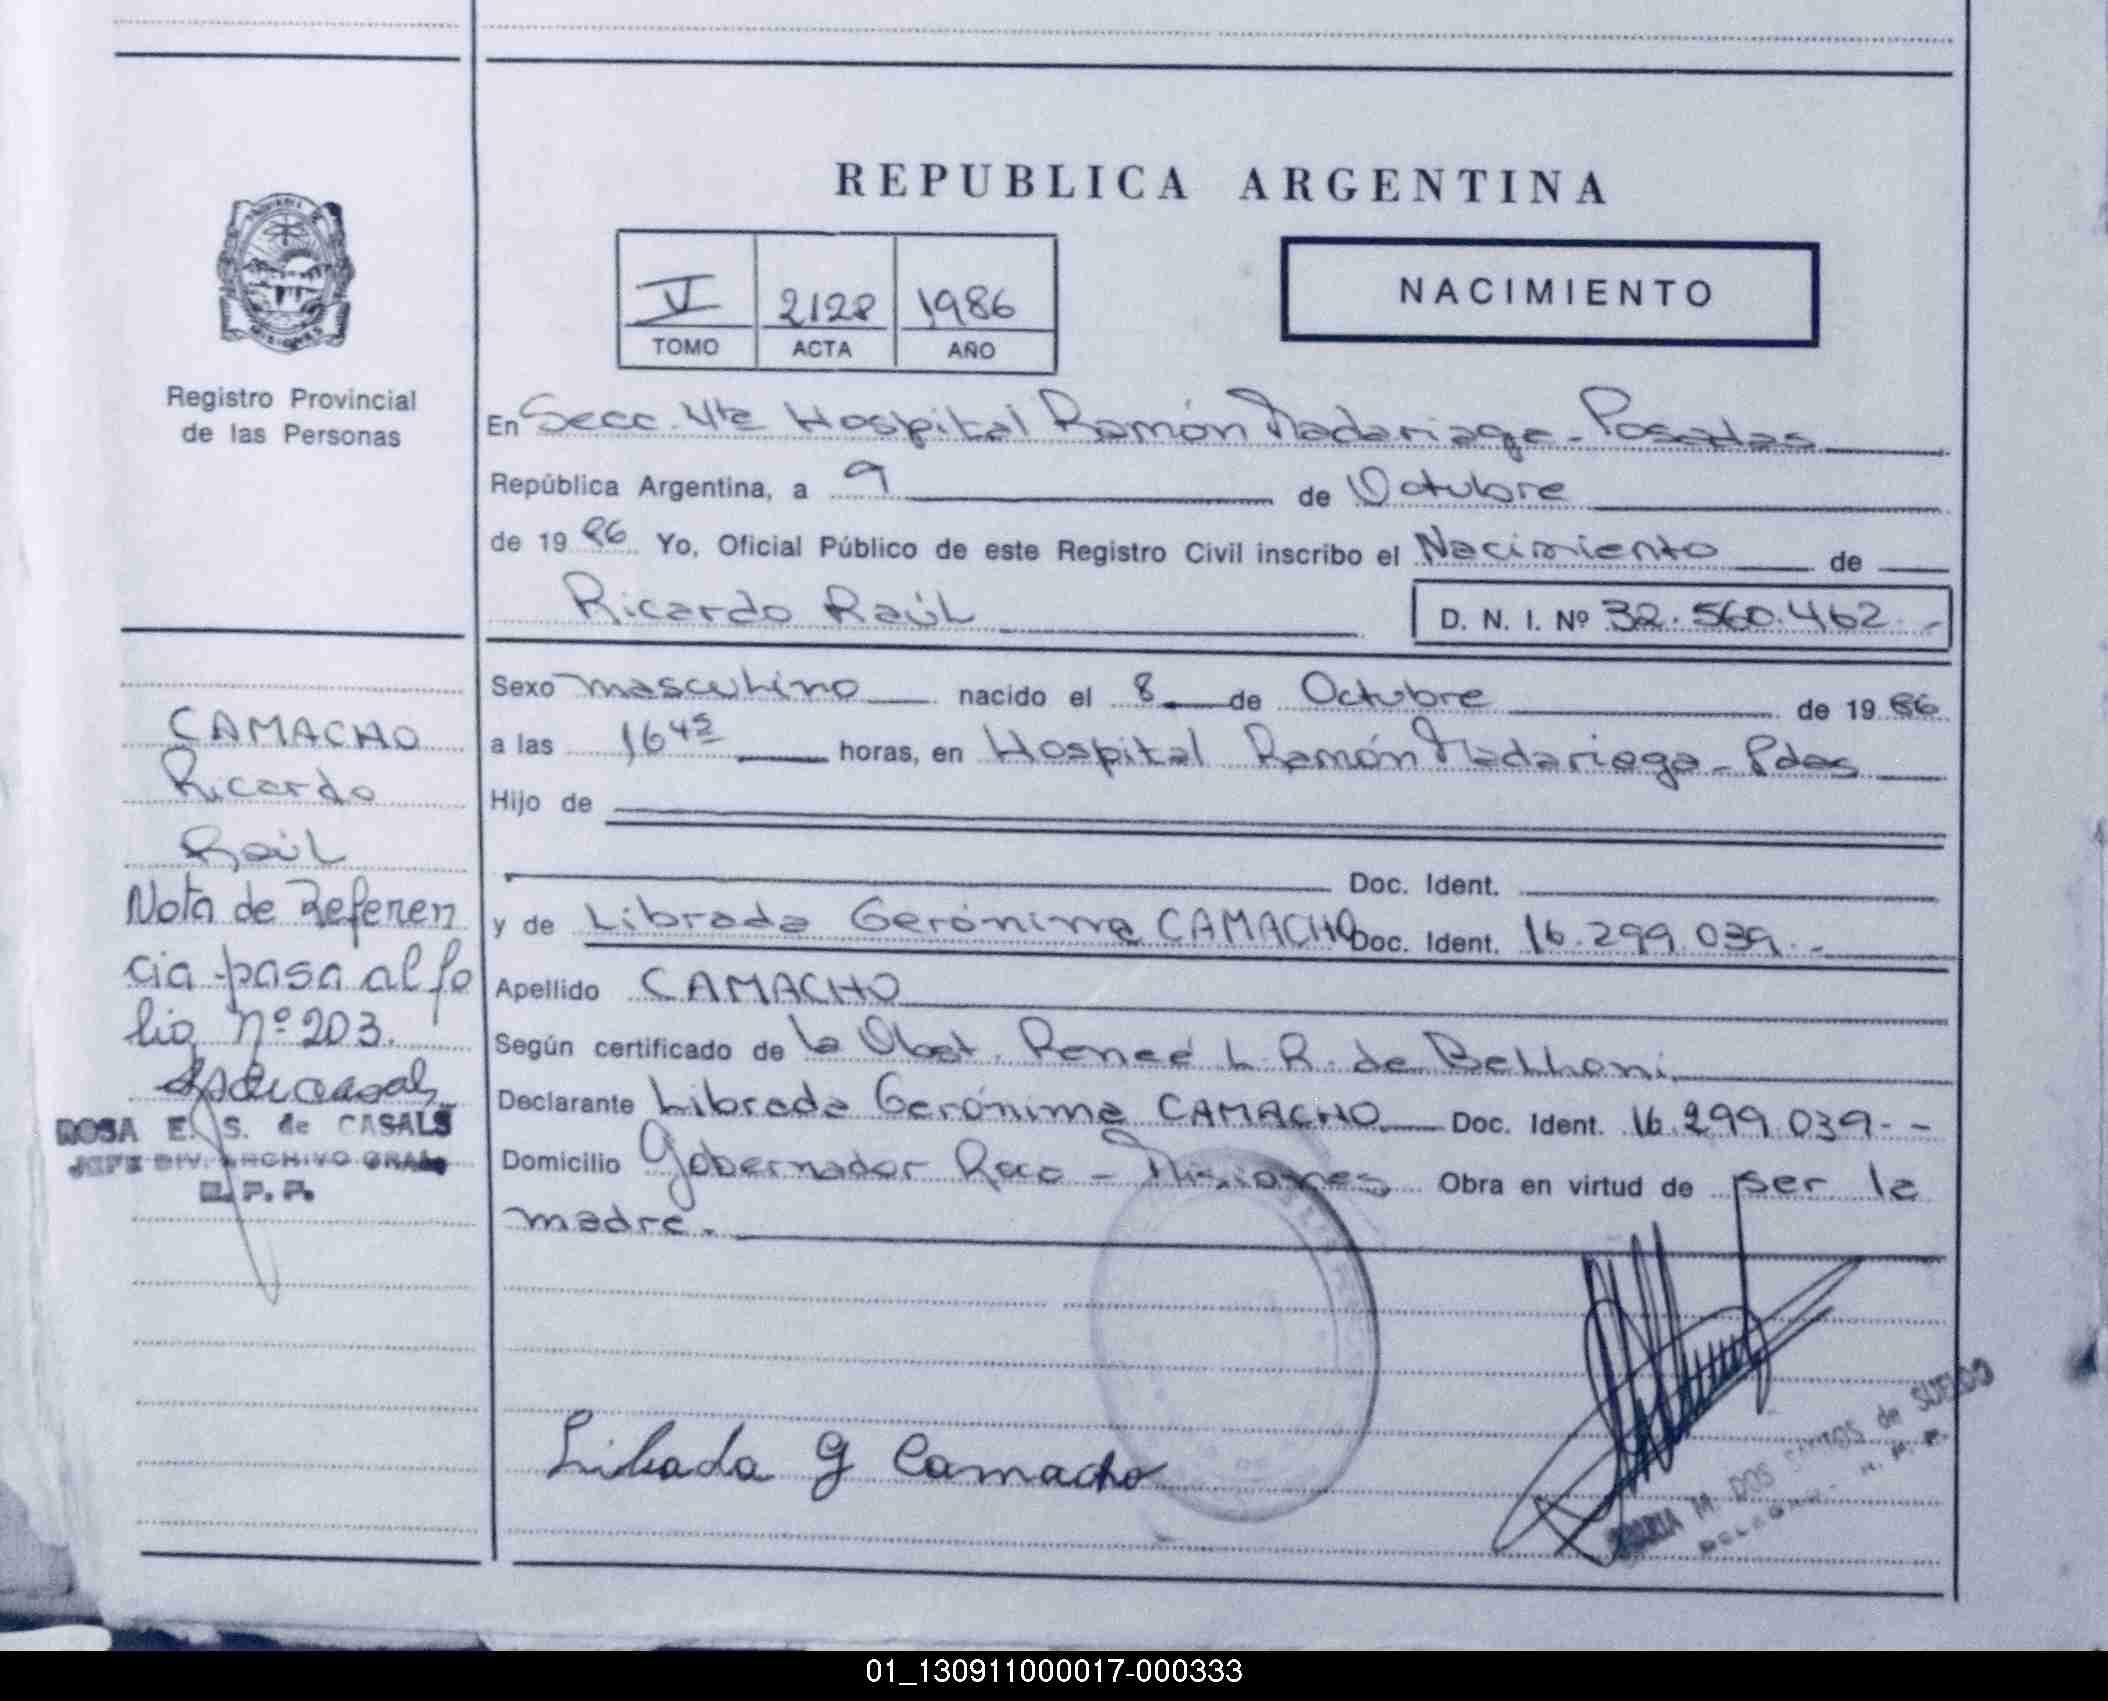 REPUBLICA ARGENTINA
V 2128 1986
TOMO ACTA AÑO
NACIMIENTO
Registro Provincial
de las Personas
En Secc. 4ta Hospital Ramón Madariaga - Posadas
República Argentina, a 9 de Octubre
de 19 86 Yo, Oficial Público de este Registro Civil inscribo el Nacimiento de
Ricardo Raúl D. N. I. Nº 32.560.462.-
Sexo masculino nacido el 8 de Octubre de 19 86
a las 16 45 horas, en Hospital Ramón Madariaga - Pdas
Hijo de
Doc. Ident.
y de Librada Gerónima CAMACHO Doc. Ident. 16.299.039.-
Apellido CAMACHO
Según certificado de la Obst. Reneé L. R. de Belloni
Declarante Librada Gerónima CAMACHO Doc. Ident. 16.299.039--
Domicilio Gobernador Roca - Misiones Obra en virtud de ser la
madre.
CAMACHO
Ricardo
Raúl
Nota de Referen
cia pasa al fo
lio nº 203.
ROSA E. S. de CASALS
JEFE DIV. ARCHIVO GRAL
R. P. P.
Librada G Camacho
MARIA M. DOS SANTOS de SUELDO
01_130911000017-000333